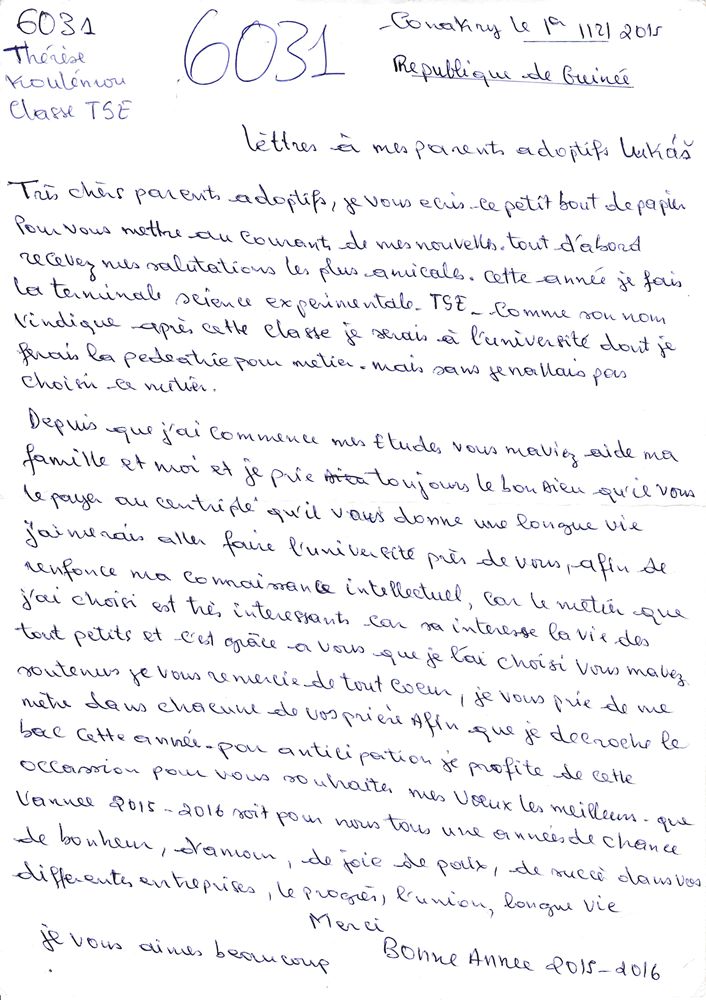 6031
Thérèse
Koulémou
Classe TSE
6031
Conakry le 1er 112/ 2015
Republique de Guinée
lèttres à mes parents adoptifs Lukáš
Très chèrs parents adoptifs, je vous ecris ce petit bout de papier
Pour vous mettre au courants de mes nouvelles. tout d'abord
recevez mes salutations les plus amicales. cette année je fais
la terminale science experimentale. TSE_ Comme son nom
l'indique après cette classe je serais à l'université dont je
ferais la pedeatrie pour metier. mais sans je n'allais pas
choisir ce métier.
Depuis que j'ai commence mes Etudes vous m'aviez aide ma
famille et moi et je prie toujours le bon Dieu qu'il vous
le payer au centriplé qu'il vous donne une longue vie
j'aimerais aller faire l'université près de vous, afin de
renfonce ma connaissance intellectuel, car le métier que
j'ai choisi est très interessants car sa interesse la vie des
tout petits et c'est grâce a vous que je l'ai choisi vous m'avez
soutenus je vous remercie de tout coeur, je vous prie de me
mètre dans chacune de vos prière Afin que je decroche le
bac cette année. par anticipation je profite de cette
occassion pour vous souhaites mes voeux les meilleurs. que
l'annee 2015-2016 soit pour nous tous une années de chance
de bonheur, d'amour, de joie de paix, de succè dans vos
differentes entreprises, le progrès, l'union, longue vie
Merci
je vous aimes beaucoup
BONNE ANNEE 2015-2016